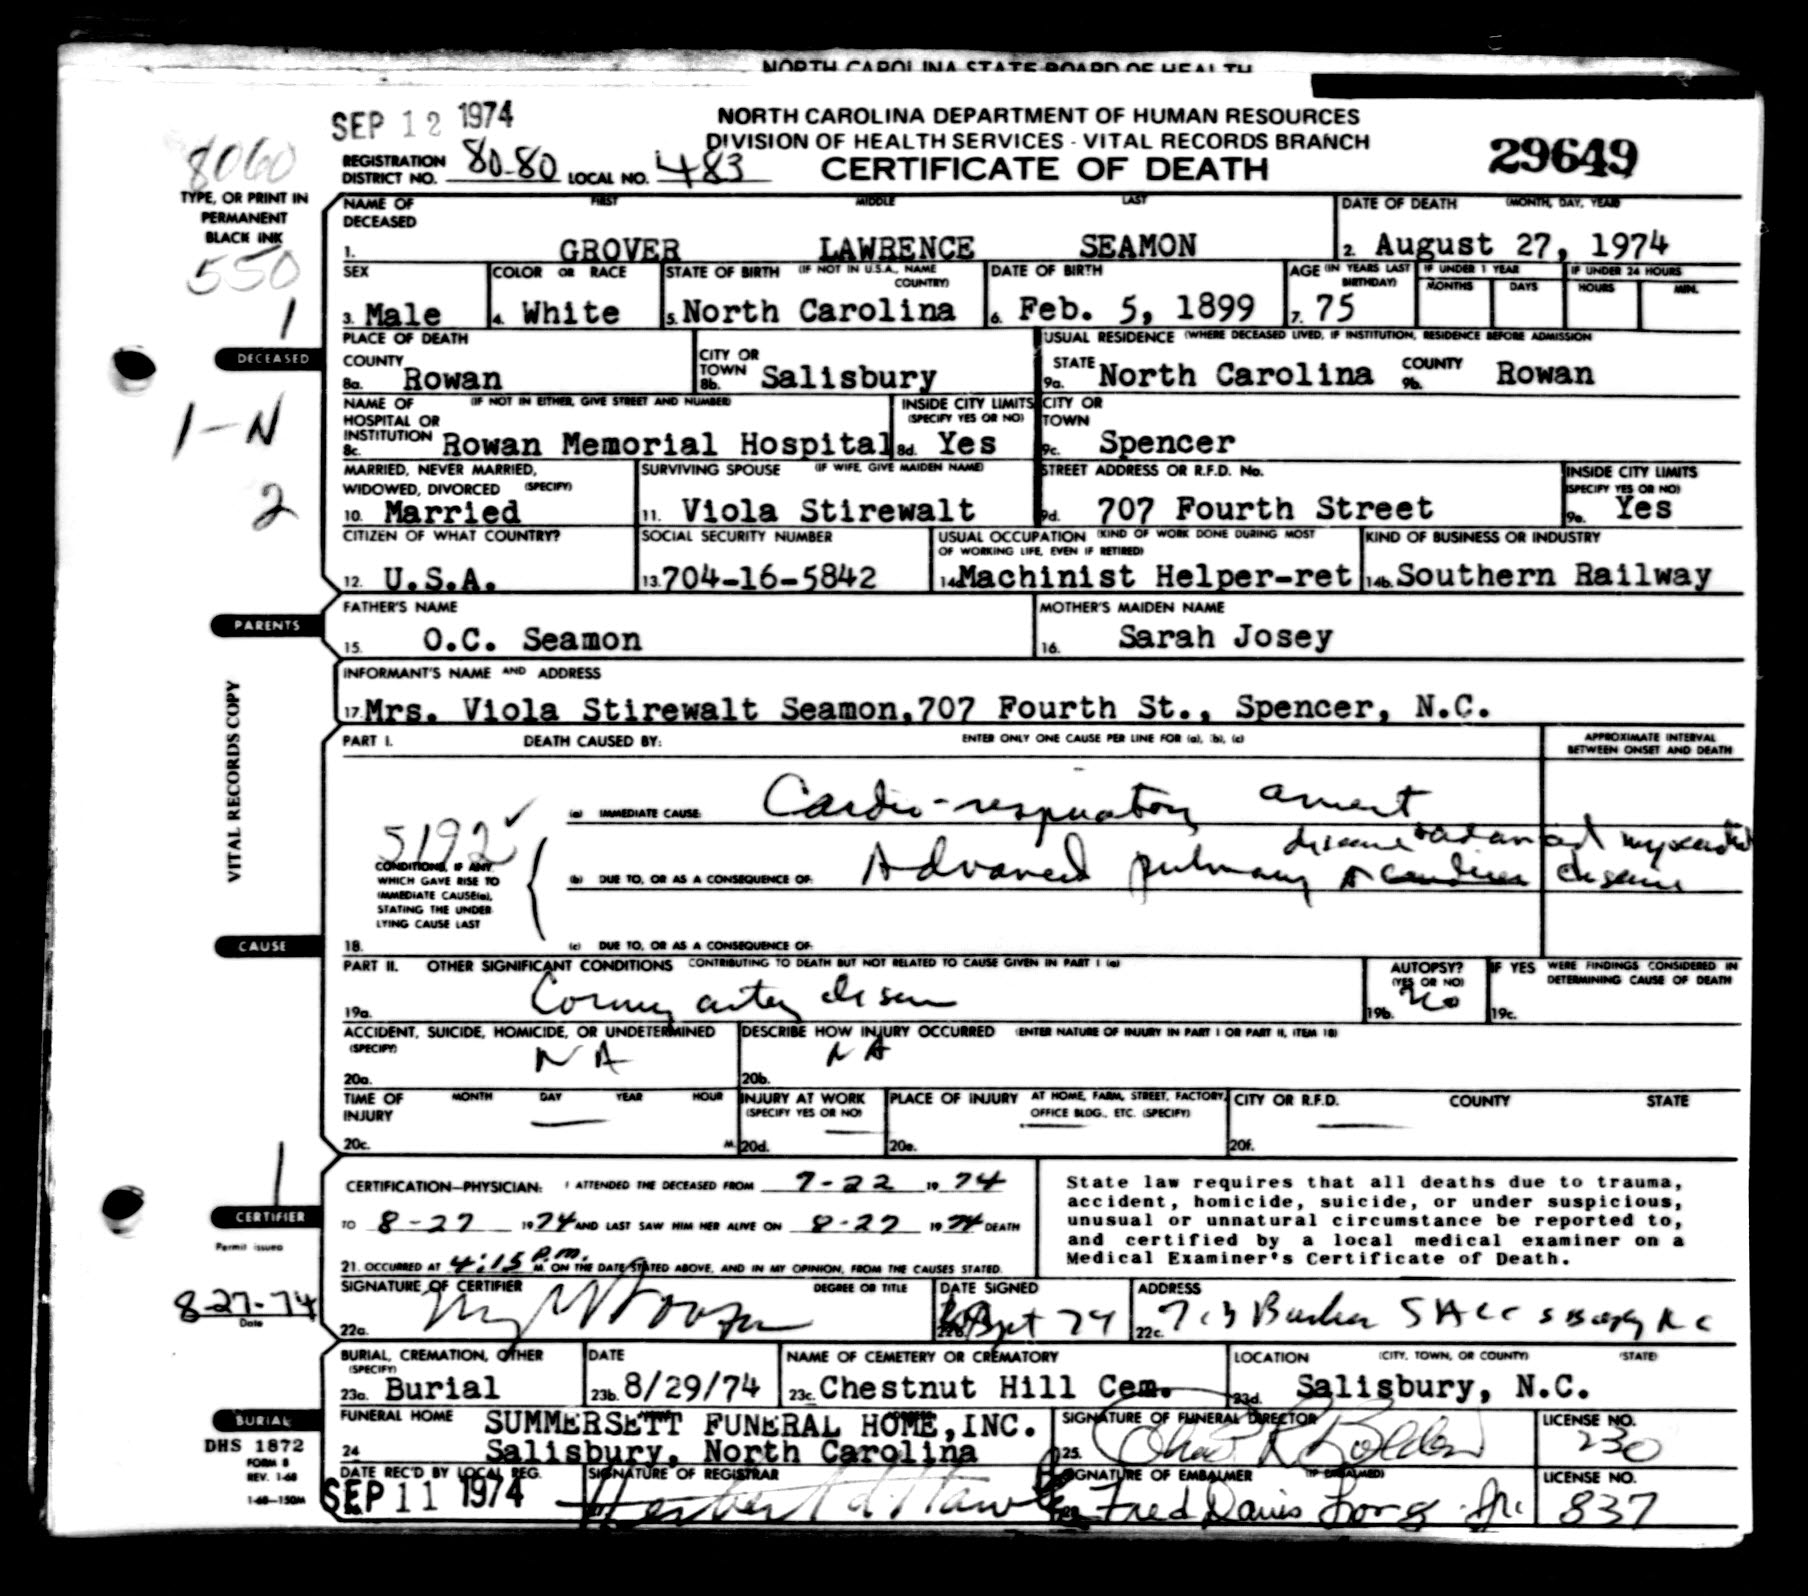 NORTH CAROLINA STATE BOARD OF HEALTH
SEP 12 1974
NORTH CAROLINA DEPARTMENT OF HUMAN RESOURCES
DIVISION OF HEALTH SERVICES - VITAL RECORDS BRANCH
CERTIFICATE OF DEATH
29649
8060
REGISTRATION DISTRICT NO. 80-80 LOCAL NO. 483
TYPE, OR PRINT IN
PERMANENT
BLACK INK
550
1
DECEASED
1-N
2
NAME OF DECEASED FIRST MIDDLE LAST
1. GROVER LAWRENCE SEAMON
DATE OF DEATH (MONTH, DAY, YEAR)
2. August 27, 1974
SEX
3. Male
COLOR OR RACE
4. White
STATE OF BIRTH (IF NOT IN U.S.A., NAME COUNTRY)
5. North Carolina
DATE OF BIRTH
6. Feb. 5, 1899
AGE (IN YEARS LAST BIRTHDAY)
7. 75
IF UNDER 1 YEAR
MONTHS DAYS
IF UNDER 24 HOURS
HOURS MIN.
PLACE OF DEATH
COUNTY
8a. Rowan
CITY OR TOWN
8b. Salisbury
USUAL RESIDENCE (WHERE DECEASED LIVED, IF INSTITUTION, RESIDENCE BEFORE ADMISSION
STATE
9a. North Carolina
COUNTY
9b. Rowan
NAME OF HOSPITAL OR INSTITUTION (IF NOT IN EITHER, GIVE STREET AND NUMBER)
8c. Rowan Memorial Hospital
INSIDE CITY LIMITS (SPECIFY YES OR NO)
8d. Yes
CITY OR TOWN
9c. Spencer
MARRIED, NEVER MARRIED, WIDOWED, DIVORCED (SPECIFY)
10. Married
SURVIVING SPOUSE (IF WIFE, GIVE MAIDEN NAME)
11. Viola Stirewalt
STREET ADDRESS OR R.F.D. No.
9d. 707 Fourth Street
INSIDE CITY LIMITS (SPECIFY YES OR NO)
9e. Yes
CITIZEN OF WHAT COUNTRY?
12. U.S.A.
SOCIAL SECURITY NUMBER
13. 704-16-5842
USUAL OCCUPATION (KIND OF WORK DONE DURING MOST OF WORKING LIFE, EVEN IF RETIRED)
14a. Machinist Helper-ret
KIND OF BUSINESS OR INDUSTRY
14b. Southern Railway
PARENTS
FATHER'S NAME
15. O.C. Seamon
MOTHER'S MAIDEN NAME
16. Sarah Josey
INFORMANT'S NAME AND ADDRESS
17. Mrs. Viola Stirewalt Seamon, 707 Fourth St., Spencer, N.C.
VITAL RECORDS COPY
PART I. DEATH CAUSED BY: ENTER ONLY ONE CAUSE PER LINE FOR (a), (b), (c)
APPROXIMATE INTERVAL BETWEEN ONSET AND DEATH
(a) IMMEDIATE CAUSE: Cardio-respiratory arrest
5192 ✓
CONDITIONS, IF ANY
WHICH GAVE RISE TO
IMMEDIATE CAUSE(a),
STATING THE UNDER
LYING CAUSE LAST
(b) DUE TO, OR AS A CONSEQUENCE OF: Advanced pulmonary disease
CAUSE
18. (c) DUE TO, OR AS A CONSEQUENCE OF:
PART II. OTHER SIGNIFICANT CONDITIONS CONTRIBUTING TO DEATH BUT NOT RELATED TO CAUSE GIVEN IN PART I (a)
19a. Coronary artery disease
AUTOPSY? (YES OR NO)
19b. no
IF YES WERE FINDINGS CONSIDERED IN DETERMINING CAUSE OF DEATH
19c.
ACCIDENT, SUICIDE, HOMICIDE, OR UNDETERMINED (SPECIFY)
20a. NA
DESCRIBE HOW INJURY OCCURRED (ENTER NATURE OF INJURY IN PART I OR PART II, ITEM 18)
20b. NA
TIME OF INJURY MONTH DAY YEAR HOUR
20c. — M.
INJURY AT WORK (SPECIFY YES OR NO)
20d. —
PLACE OF INJURY AT HOME, FARM, STREET, FACTORY, OFFICE BLDG., ETC. (SPECIFY)
20e. —
CITY OR R.F.D. COUNTY STATE
20f. —
1
CERTIFIER
Permit issued
8-27-74
Date
CERTIFICATION—PHYSICIAN: I ATTENDED THE DECEASED FROM 7-22 1974
TO 8-27 1974 AND LAST SAW HIM HER ALIVE ON 8-27 1974 DEATH
21. OCCURRED AT 4:15 P.m. M. ON THE DATE STATED ABOVE, AND IN MY OPINION, FROM THE CAUSES STATED.
State law requires that all deaths due to trauma,
accident, homicide, suicide, or under suspicious,
unusual or unnatural circumstance be reported to,
and certified by a local medical examiner on a
Medical Examiner's Certificate of Death.
SIGNATURE OF CERTIFIER DEGREE OR TITLE
22a.
DATE SIGNED
22b. Sept 74
ADDRESS
22c.
BURIAL, CREMATION, OTHER (SPECIFY)
23a. Burial
DATE
23b. 8/29/74
NAME OF CEMETERY OR CREMATORY
23c. Chestnut Hill Cem.
LOCATION (CITY, TOWN, OR COUNTY) (STATE)
23d. Salisbury, N.C.
BURIAL
DHS 1872
FORM 8
REV. 1-68
1-68—150M
FUNERAL HOME
24. SUMMERSETT FUNERAL HOME, INC.
Salisbury, North Carolina
SIGNATURE OF FUNERAL DIRECTOR
25.
LICENSE NO.
230
DATE REC'D BY LOCAL REG.
SEP 11 1974
SIGNATURE OF REGISTRAR
SIGNATURE OF EMBALMER (IF EMBALMED)
Fred Davis Long Jr.
LICENSE NO.
837